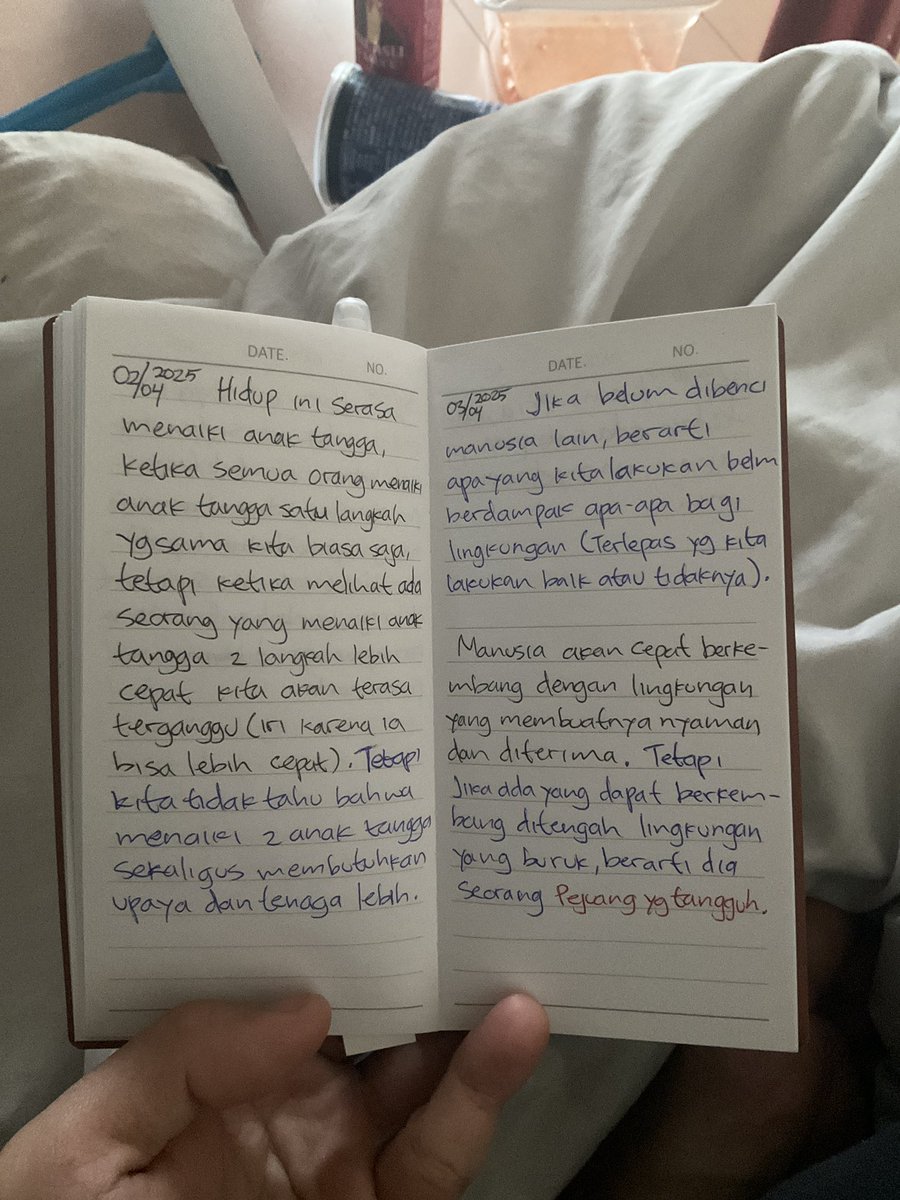 DATE.
NO.
02/04 2025 Hidup ini serasa
menaiki anak tangga,
ketika semua orang menaiki
anak tangga satu langkah
yg sama kita biasa saja,
tetapi ketika melihat ada
seorang yang menaiki anak
tangga 2 langkah lebih
cepat kita akan terasa
terganggu (iri karena ia
bisa lebih cepat). Tetapi
kita tidak tahu bahwa
menaiki 2 anak tangga
sekaligus membutuhkan
upaya dan tenaga lebih.
DATE.
NO.
03/04 2025 Jika belum dibenci
manusia lain, berarti
apa yang kita lakukan belm
berdampak apa-apa bagi
lingkungan (Terlepas yg kita
lakukan baik atau tidaknya).
Manusia akan cepat berke-
mbang dengan lingkungan
yang membuatnya nyaman
dan diterima. Tetapi
Jika ada yang dapat berkem-
bang ditengah lingkungan
yang buruk, berarti dia
seorang Pejuang yg tangguh.